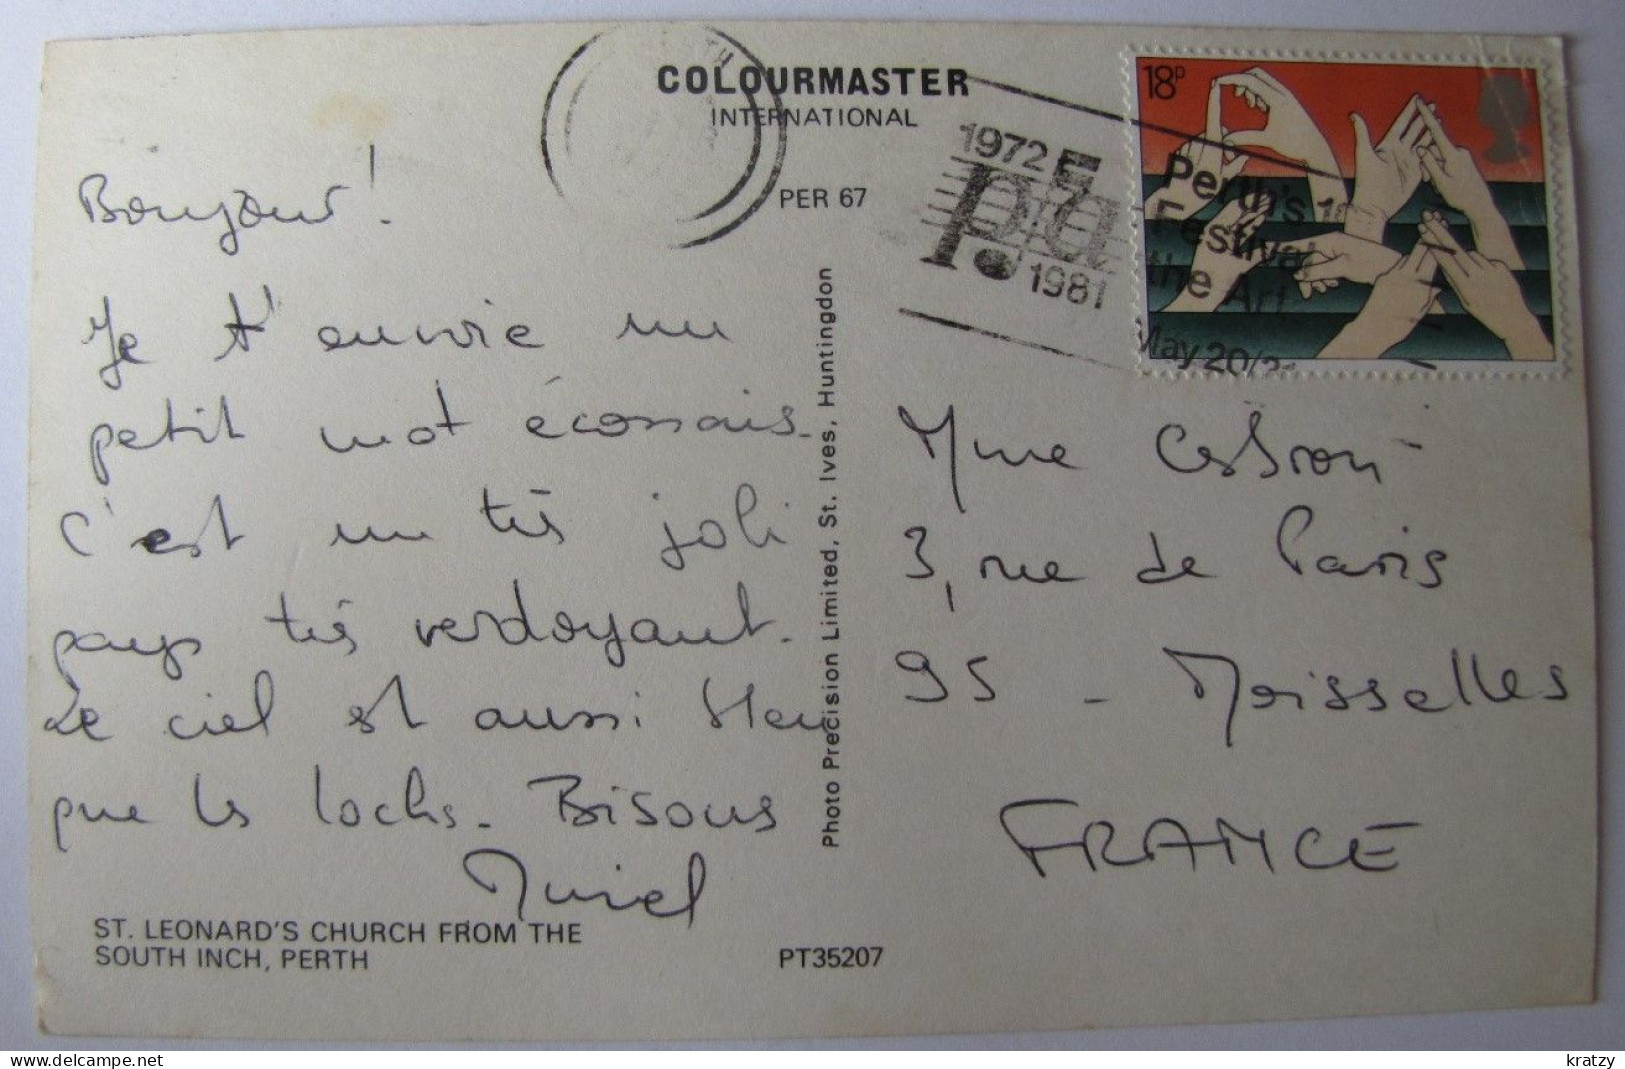 COLOURMASTER
INTERNATIONAL
PER 67
18P
1972
p.a
1981
Perth's 10
Festival
the Art
May 20/2
Bonjour !
Je t'envoie un
petit mot écossais.
C'est un très joli
pays très verdoyant.
Le ciel est aussi bleu
que les lochs. Bisous
Muriel
Photo Precision Limited, St. Ives, Huntingdon
Mme Cesbron
3, rue de Paris
95 - Moisselles
FRANCE
ST. LEONARD'S CHURCH FROM THE
SOUTH INCH, PERTH
PT35207
delcampe.net
kratzy